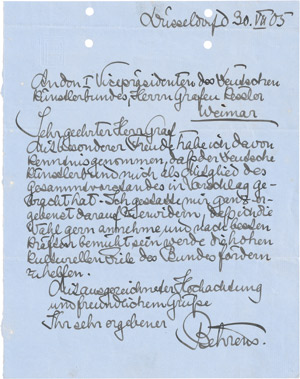 Düsseldorf 30. VII 05
An den I Vicepräsidenten des Deutschen
Künstlerbundes, Herrn Grafen Kessler
Weimar
Sehr geehrter Herr Graf
Mit besonderer Freude habe ich davon
Kenntnis genommen, dass der Deutsche
Künstlerbund mich als Mitglied des
Gesammtvorstandes in Vorschlag ge-
bracht hat. Ich gestatte mir ganz er-
gebenst darauf zu erwidern, dass ich die
Wahl gern annehme und nach besten
Kräften bemüht sein werde die hohen
kulturellen Ziele des Bundes fördern
zu helfen.
Mit ausgezeichneter Hochachtung
und freundlichem Grusse
Ihr sehr ergebener
Behrens.